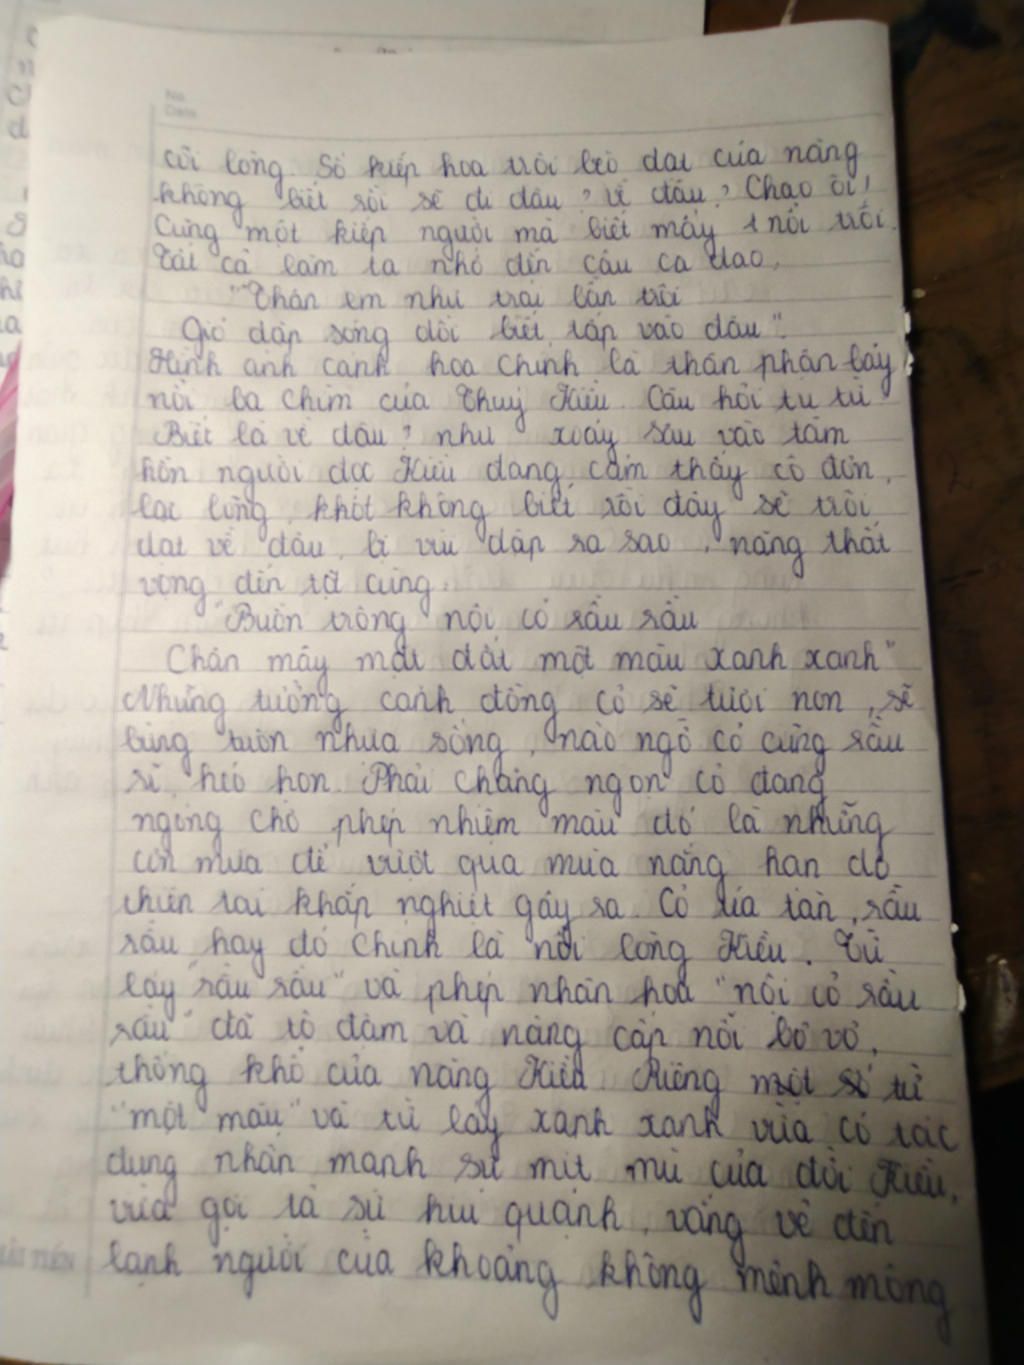 No.
Date
cõi lòng. Số kiếp hoa trôi bèo dạt của nàng
không biết rồi sẽ đi đâu? Về đâu? Chao ôi!
Cùng một kiếp người mà biết mấy nổi trôi.
Tất cả làm ta nhớ đến câu ca dao,
"Thân em như trái bần trôi
Gió dập sóng dồi biết tấp vào đâu".
Hình ảnh cánh hoa chính là thân phận bảy
nổi ba chìm của Thuý Kiều. Câu hỏi tu từ
Biết là về đâu? như xoáy sâu vào tâm
hồn người đọc Kiều đang cảm thấy cô đơn,
lạc lõng, khôt không biết rồi đây sẽ trôi
dạt về đâu, bị vùi dập ra sao, nàng thất
vọng đến tột cùng.
"Buồn trông nội cỏ rầu rầu
Chân mây mặt đất một màu xanh xanh"
Những tưởng cánh đồng cỏ sẽ tươi non, sẽ
bừng nhựa sống, nào ngờ cỏ cũng rầu
rĩ, héo hon. Phải chăng ngọn cỏ đang
ngóng chờ phép nhiệm màu đó là những
cơn mưa để vượt qua mùa nắng hạn do
thiên tai khắp nghiệt gây ra. Cỏ úa tàn, rầu
rầu hay đó chính là nỗi lòng Kiều. Từ
láy "rầu rầu" và phép nhân hoá "nội cỏ rầu
rầu" đã tô đậm và nâng cấp nỗi bơ vơ,
thống khổ của nàng Kiều. Riêng một số từ
"một màu" và từ láy xanh xanh vừa có tác
dụng nhấn mạnh sự mịt mù của đời Kiều,
vừa gợi tả sự hiu quạnh, vắng vẻ đến
lạnh người của khoảng không mênh mông